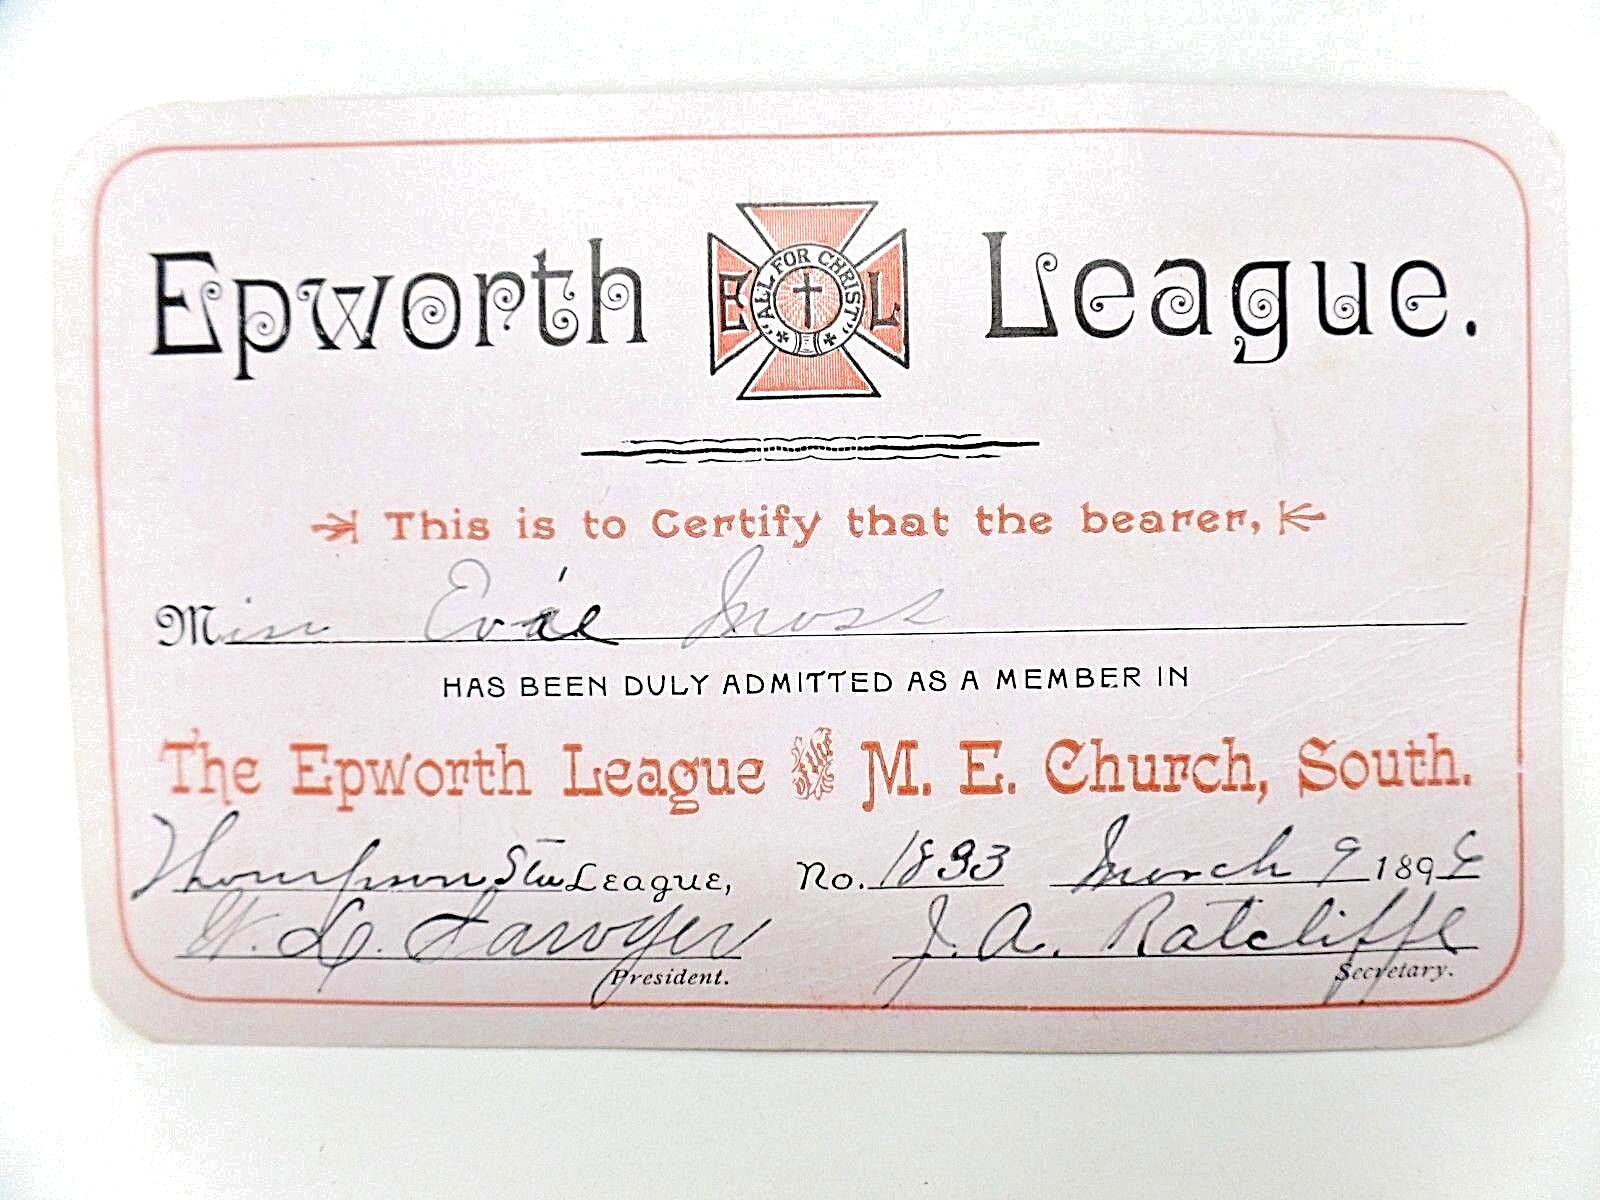 Epworth League.
"ALL FOR CHRIST"
E L
This is to Certify that the bearer,
Miss Evae Moss
HAS BEEN DULY ADMITTED AS A MEMBER IN
The Epworth League of the M. E. Church, South.
Thompson Sta League, No. 1893 March 9 189
W. L. Sawyer J. A. Ratcliffe
President. Secretary.